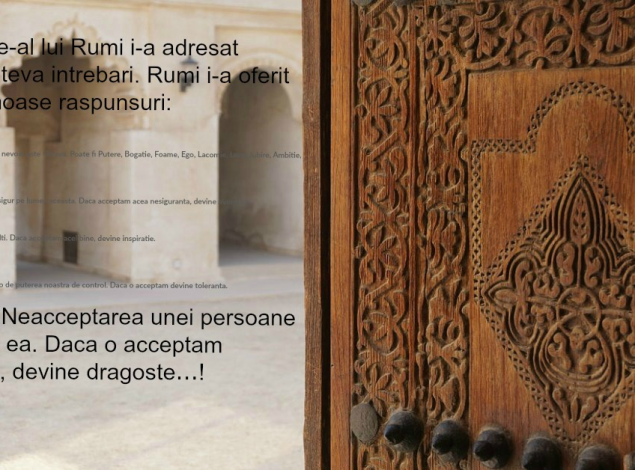 e-al lui Rumi i-a adresat
teva intrebari. Rumi i-a oferit
oase raspunsuri:
nevo fi Putere, Bogatie, Foame, Ego, Lacom Ambitie,
sigur pe Daca acceptam acea nesiguranta, devine
lti. Da bine, devine inspiratie.
o de puterea noastra de control. Daca o acceptam devine toleranta.
Neacceptarea unei persoane
ea. Daca o acceptam
, devine dragoste...!